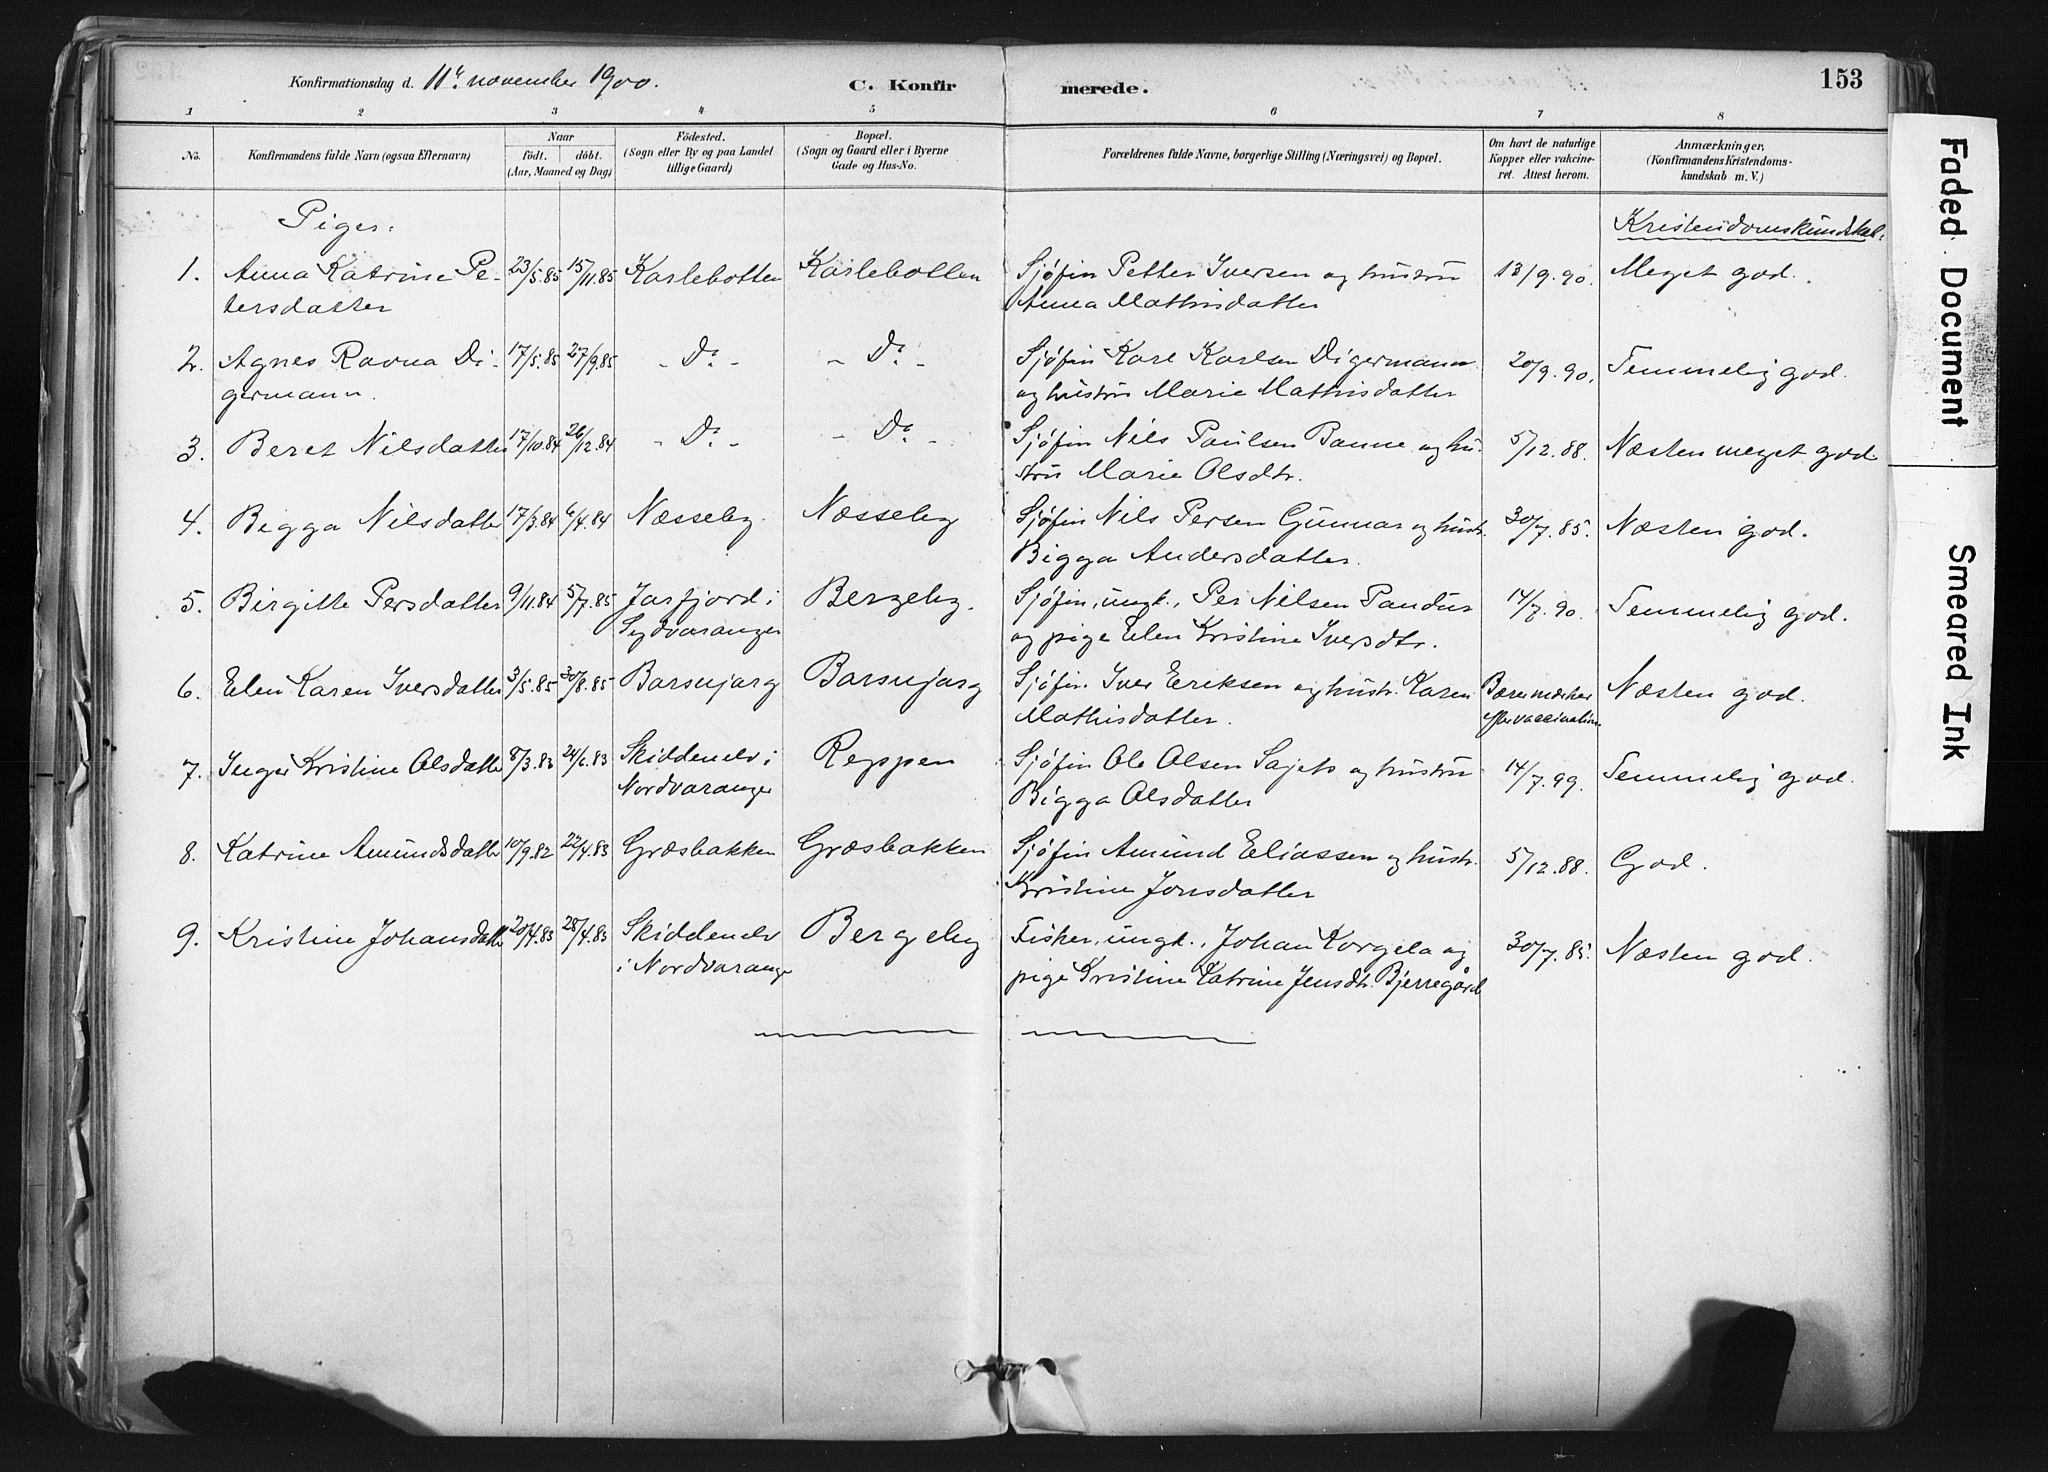 Konfirmationsdag d. 11te november 1900. C. Konfirmerede. 153
1 2 3 4 5 6 7 8
No. Konfirmandens fulde Navn (ogsaa Efternavn) Naar födt. döbt. (Aar, Maaned og Dag) Födested. (Sogn eller By og paa Landet tillige Gaard) Bopæl. (Sogn og Gaard eller i Byerne Gade og Hus-No. Forældrenes fulde Navne, borgerlige Stilling (Næringsvei) og Bopæl. Om havt de naturlige Kopper eller vakcineret. Attest herom. Anmærkninger, (Konfirmandens Kristendomskundskab m. V.)
Piger: Kristendomskundskab:
1. Anna Katrine Pe- 23/5.85 15/11.85 Karlebotten Karlebotten Sjøfin Petter Iversen og hustru 13/9.90. Meget god.
tersdatter Anna Mathisdatter
2. Agnes Ravna Di- 17/5.85 27/9.85 - Do - - Do - Sjøfin Karl Karlsen Digermann 20/9.90. Temmelig god.
germann. og hustru Marie Mathisdatter
3. Beret Nilsdatter 17/10.84 26/12.84 - Do - - Do - Sjøfin Nils Paulsen Banne og hu- 5/12.88. Næsten meget god
stru Marie Olsdtr.
4. Bigga Nilsdatter 17/3.84 6/4.84 Næsseby. Næsseby Sjøfin Nils Persen Gunnar og hustr. 30/7.85. Næsten god.
Bigga Andersdatter.
5. Birgitte Persdatter 9/11.84 5/7.85 Jarfjord i Bergeby. Sjøfin, ungk., Per Nilsen Pandur 14/7.90. Temmelig god.
Sydvaranger og pige Elen Kristine Iversdtr.
6. Elen Karen Iversdatter 3/5.85 30/8.85 Barsnjarg Barsnjarg Sjøfin. Iver Eriksen og hustr. Karen Bærer mærker Næsten god.
Mathisdatter. efter vaccination
7. Inger Kristine Olsdatter 8/3.83 24/6.83 Skiddenelv i Reppen Sjøfin Ole Olsen Sajets og hustru 14/7.99. Temmelig god.
Nordvaranger Bigga Olsdatter
8. Katrine Amundsdatter 10/9.82 22/4.83 Græsbakken Græsbakken Sjøfin Amund Eliassen og hustr. 5/12.88. God.
Kristine Jonsdatter
9. Kristine Johansdatter 20/4.83 28/4.83 Skiddenelv Bergeby Fisker, ungk., Johan Korgela og 30/7.85. Næsten god.
i Nordvaranger pige Kristine Katrine Jensdtr. Bjerregård
Faded Document
Smeared Ink